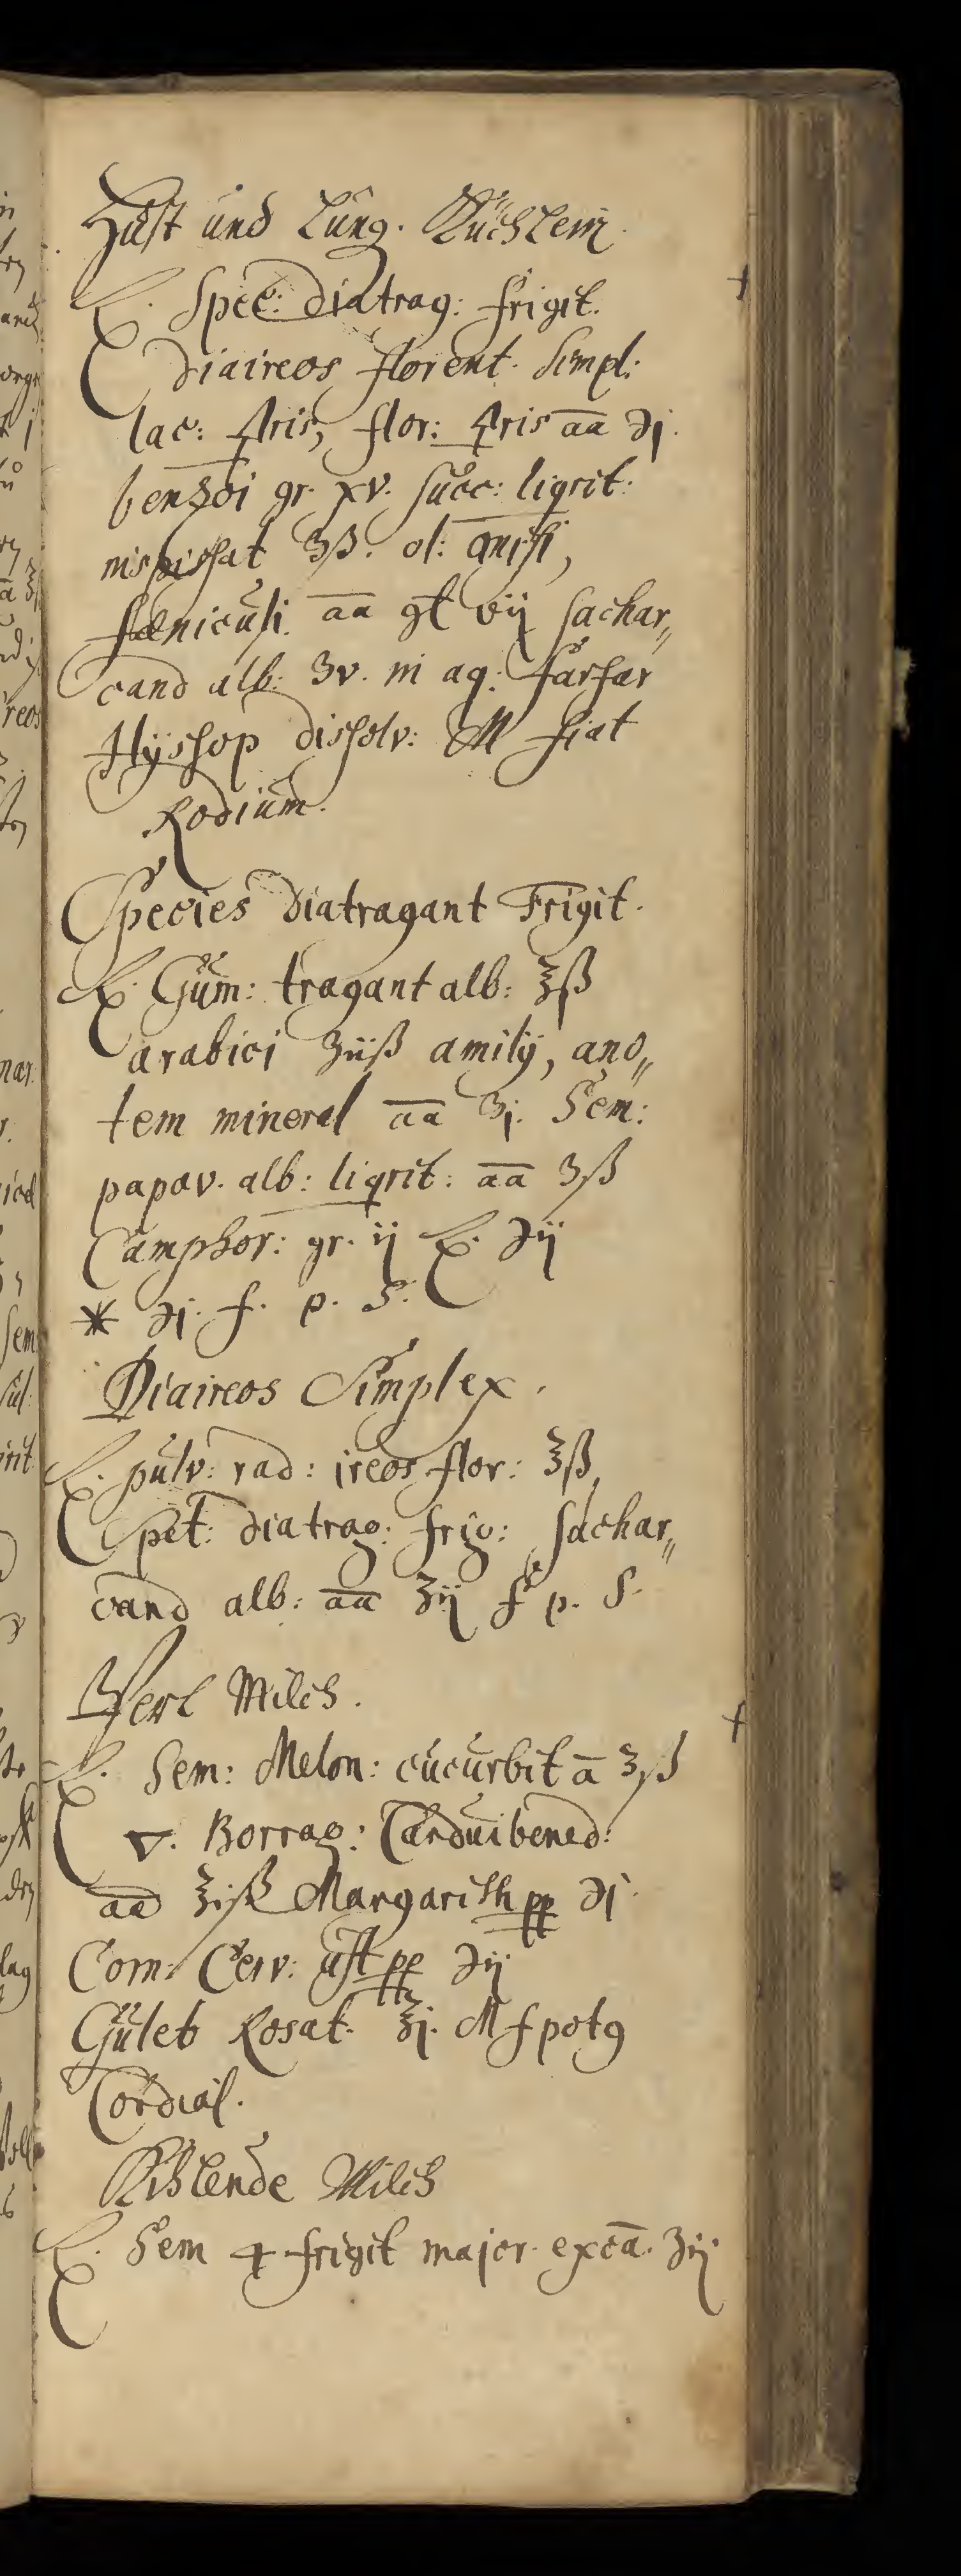 Hust und Lung. Küchlein
℞. Spec: diatrag: frigit.
diaireos florent. simpl:
lac: 🜍ris, flor: 🜍ris aa ℈j.
benzoi gr. xv. succ: liqrit:
inspissat ʒß. ol: anisi,
fæniculi aa gt vij sachar„
cand alb: ʒv. in aq: farfar
Hyssop dissolv: M fiat
Rodium.
Species diatragant Frigit.
℞. Gum: tragant alb: ℥ß
arabici ʒiiß amilij, ano„
tem mineral aa ʒj. Sem:
papav. alb: liqrit: aa ʒß
Camphor: gr. ij ℞. ℈ij
* ℈j. f. p. S.
Diaireos Simplex.
℞. pulv: rad: ireos flor: ℥ß,
Spet: diatrag: frig: sachar„
cand alb: aa ℥ij f p. S.
Perl Milch.
℞. Sem: Melon: cucurbit a ℥ß
▽. Borrag: Cardui bened:
aa ℥iß Margarith pp ℈j.
Corn: Cerv: ust pp ℈ij
Guleb Rosat. ℥j. M f potg
Cordial.
Kihlende Milch
℞. Sem 4 frigit major. exca. ʒij.